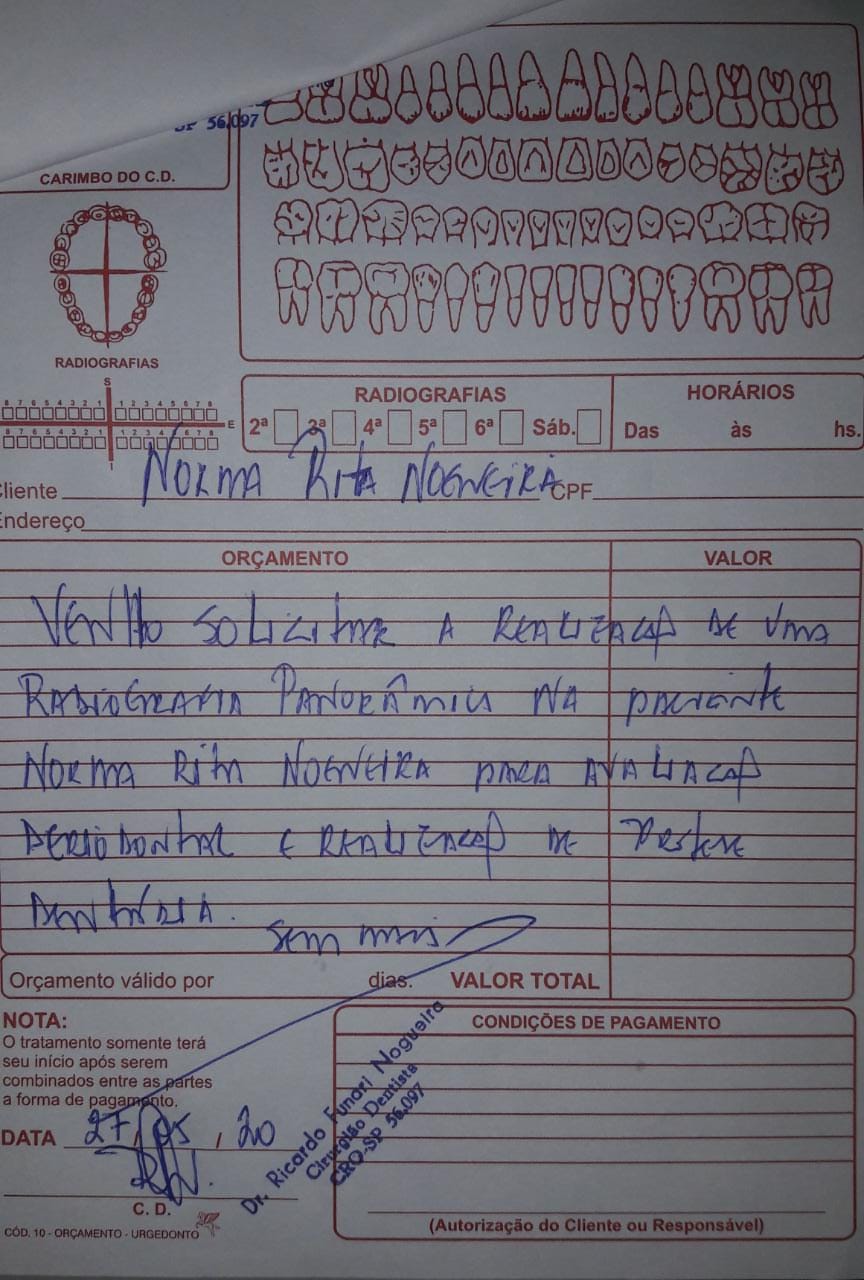 SP 56.097
CARIMBO DO C.D.
RADIOGRAFIAS
S
8 7 6 5 4 3 2 1 1 2 3 4 5 6 7 8
E
8 7 6 5 4 3 2 1 1 2 3 4 5 6 7 8
I
RADIOGRAFIAS
2ª 3ª 4ª 5ª 6ª Sáb.
HORÁRIOS
Das às hs.
Cliente NORMA RITA NOGUEIRA CPF
Endereço
ORÇAMENTO VALOR
VENHO SOLICITAR A REALIZAÇÃO DE UMA
RADIOGRAFIA PANORÂMICA NA PACIENTE
NORMA RITA NOGUEIRA PARA AVALIAÇÃO
PERIODONTAL E REALIZAÇÃO DE PRÓTESE
DENTÁRIA.
SEM MAIS
Orçamento válido por dias. VALOR TOTAL
NOTA:
O tratamento somente terá
seu início após serem
combinados entre as partes
a forma de pagamento.
DATA 27/05/20
C. D.
CÓD. 10 - ORÇAMENTO - URGEDONTO
Dr. Ricardo Funari Nogueira
Cirurgião Dentista
CRO-SP 56.097
CONDIÇÕES DE PAGAMENTO
(Autorização do Cliente ou Responsável)